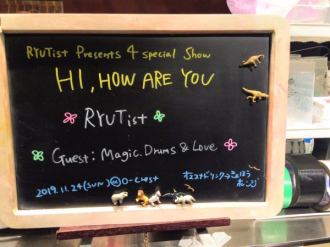 RYUTist Presents 4 special Show
HI, HOW ARE YOU
RYUTist
Guest: Magic, Drums & Love
2019.11.24(SUN) @O-Crest
オススメドリンク→きのぼう